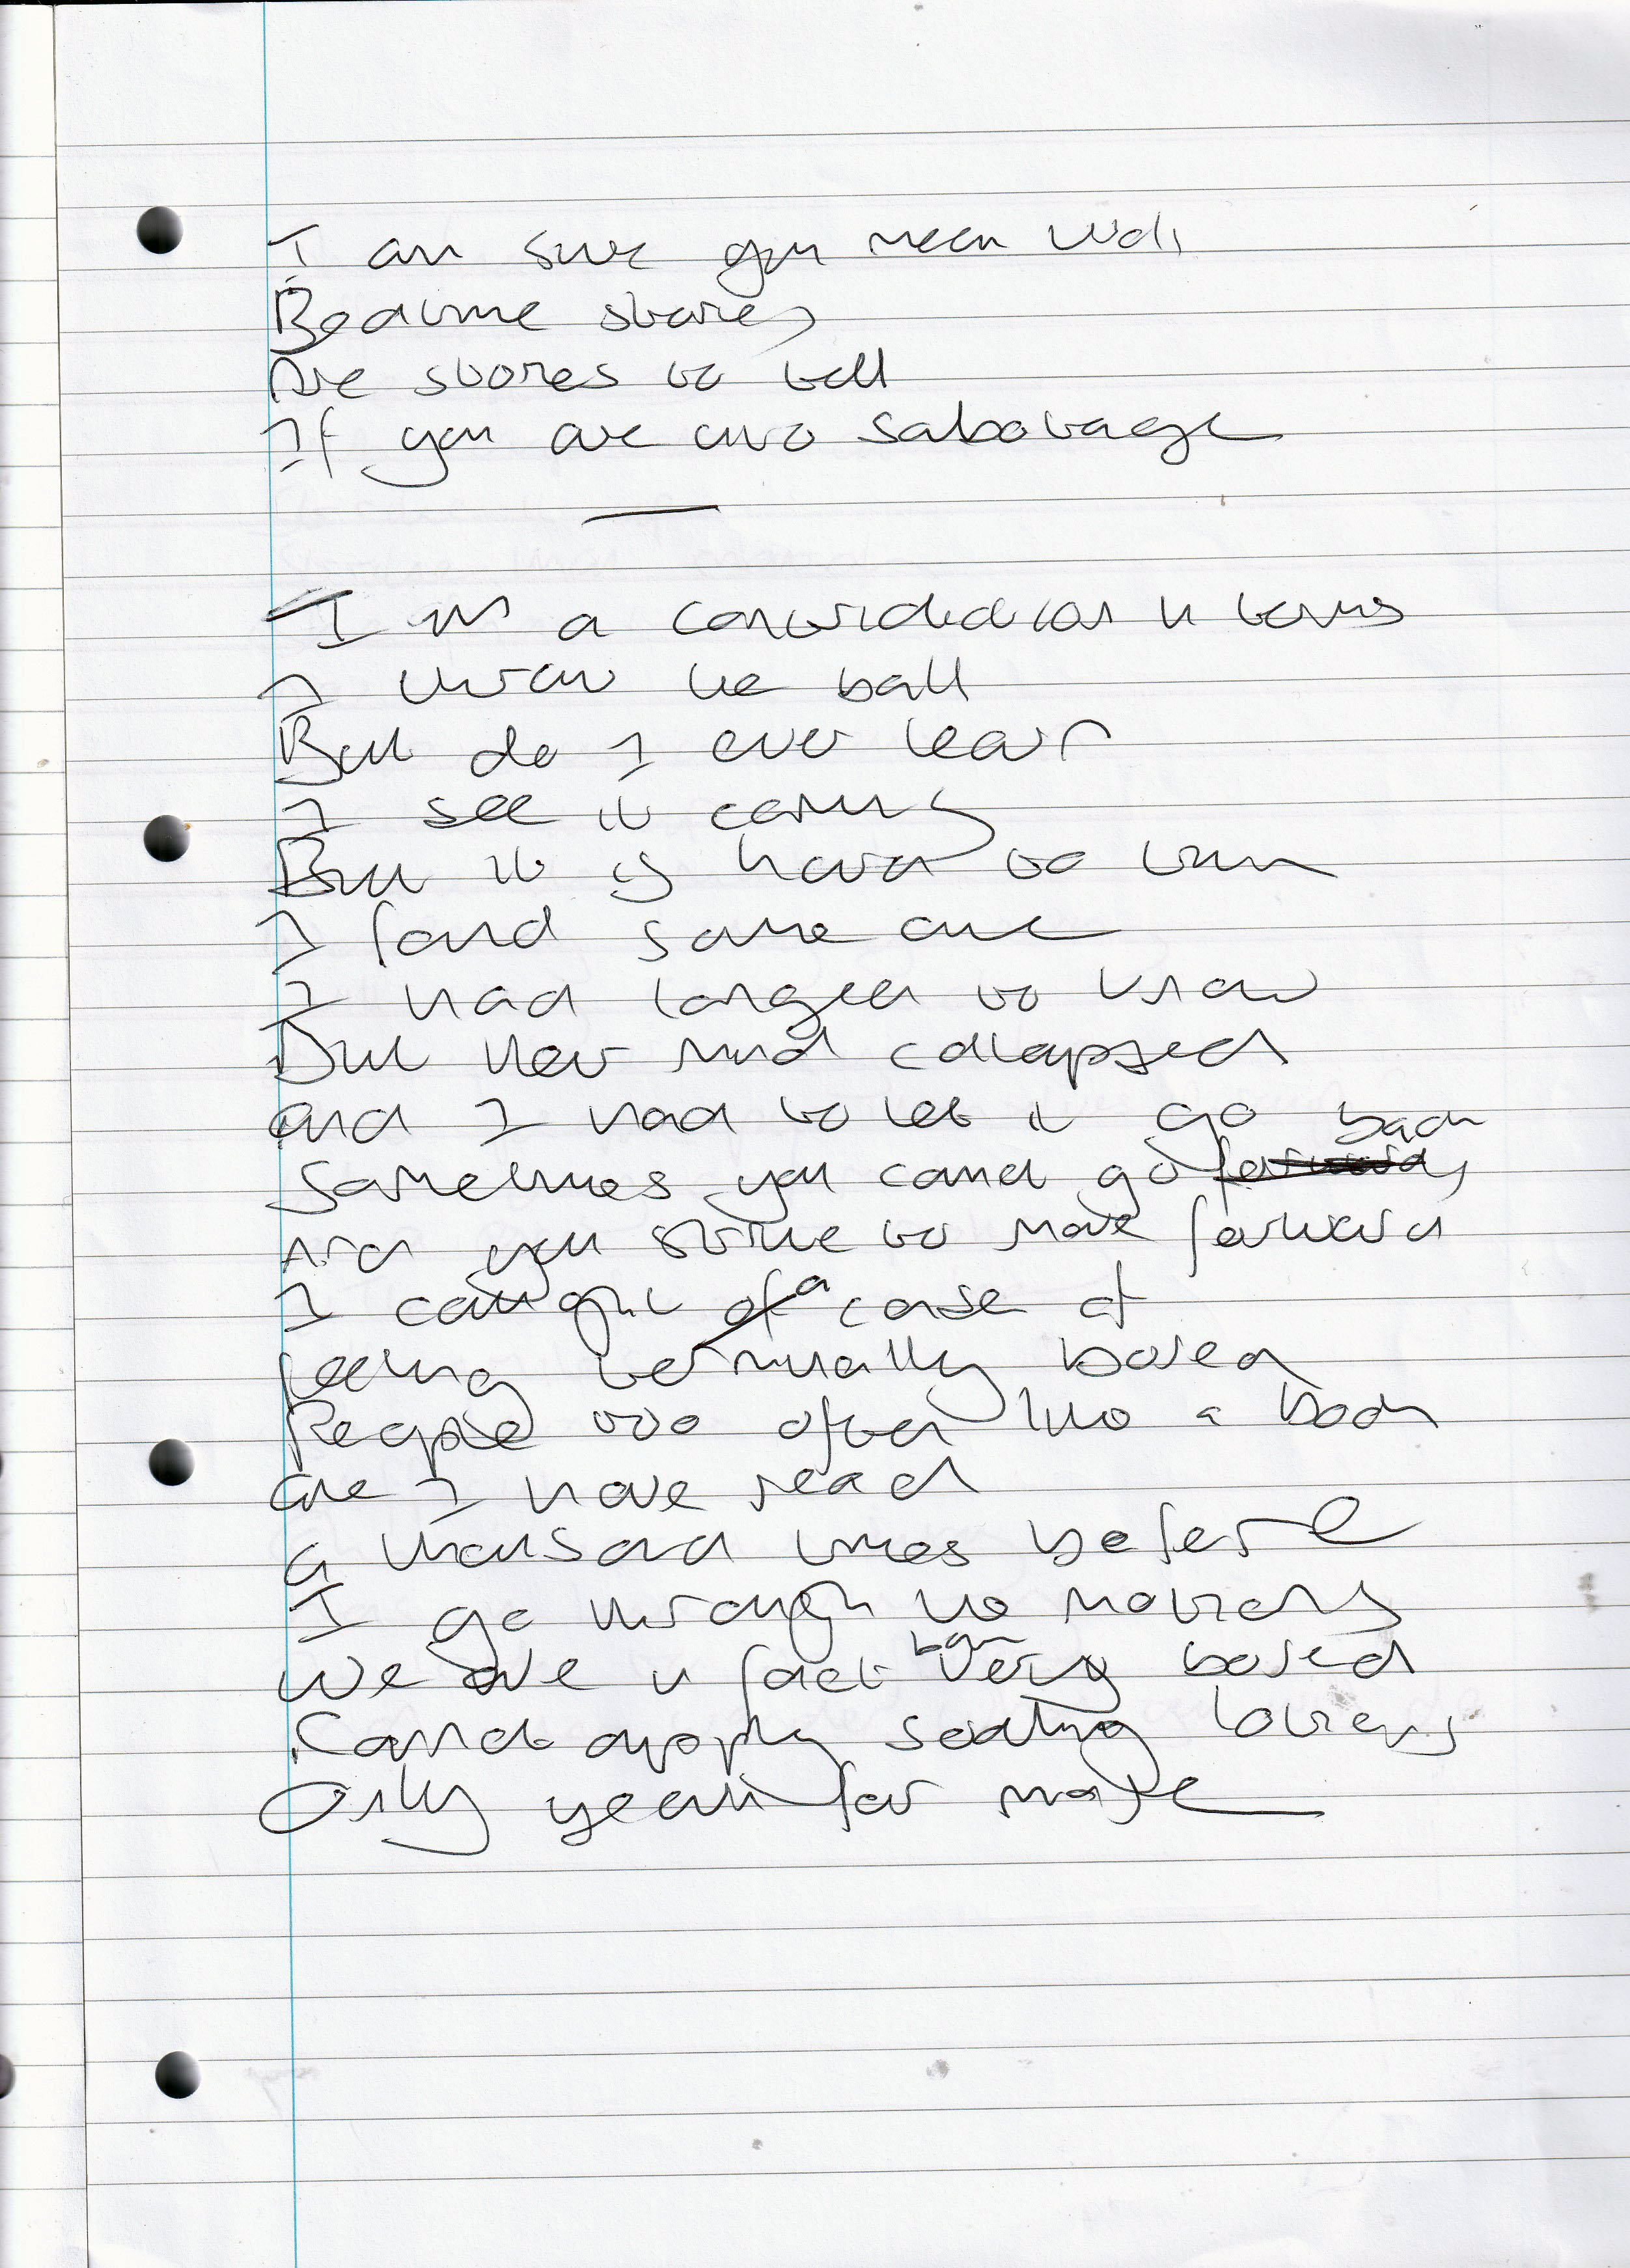 I am sure you mean well
Bedtime stories
Are stories to tell
If you are into sabotage
I'm a contradiction in terms
I throw the ball
But do I ever learn
I see it coming
But it is hard to turn
I found some one
I had longed to know
But her mind collapsed
and I had to let it go
Sometimes you cannot go back
And you strive to move forward
I caught a case of
feeling terminally bored
People too often like a book
one I have read
a thousand times before
I go through the motions
We are in fact both very bored
Cannot apply soothing lotions
Only yearn for more